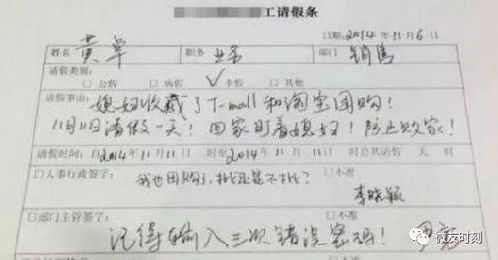 工请假条
日期:2014年11月6日
姓名 黄卓 职务 业务 部门 销售
请假类别:
□公假 □病假 ✓事假 □其他
请假事由:
媳妇收藏了T-mall和淘宝团购!
11月11日请假一天!回家盯着媳妇!防止败家!
请假时间:自2014年11月11日 时至2014年11月11日 时总共请假 天 时
□人事行政签字: □不准
我也团购了,批还是不批?
李晓颖
□部门主管签字: □不准
记得输入三次错误密码!
微友时刻